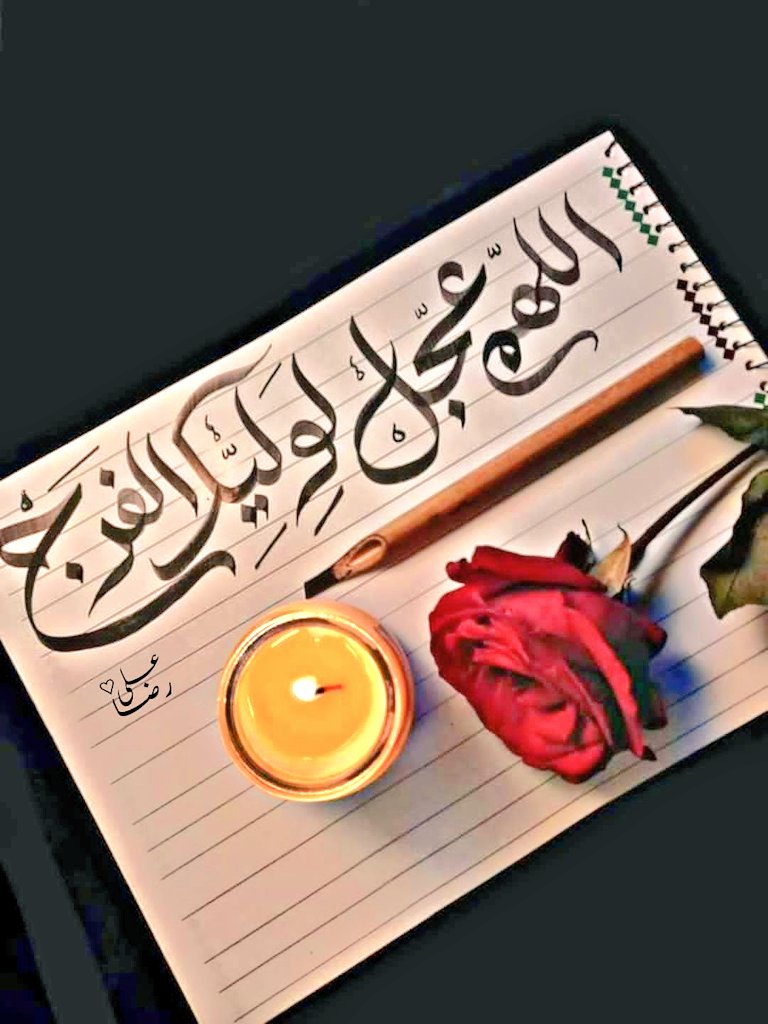 اللّهمّ عجّل لِوَليّكَ الفَرَج
علی رضا